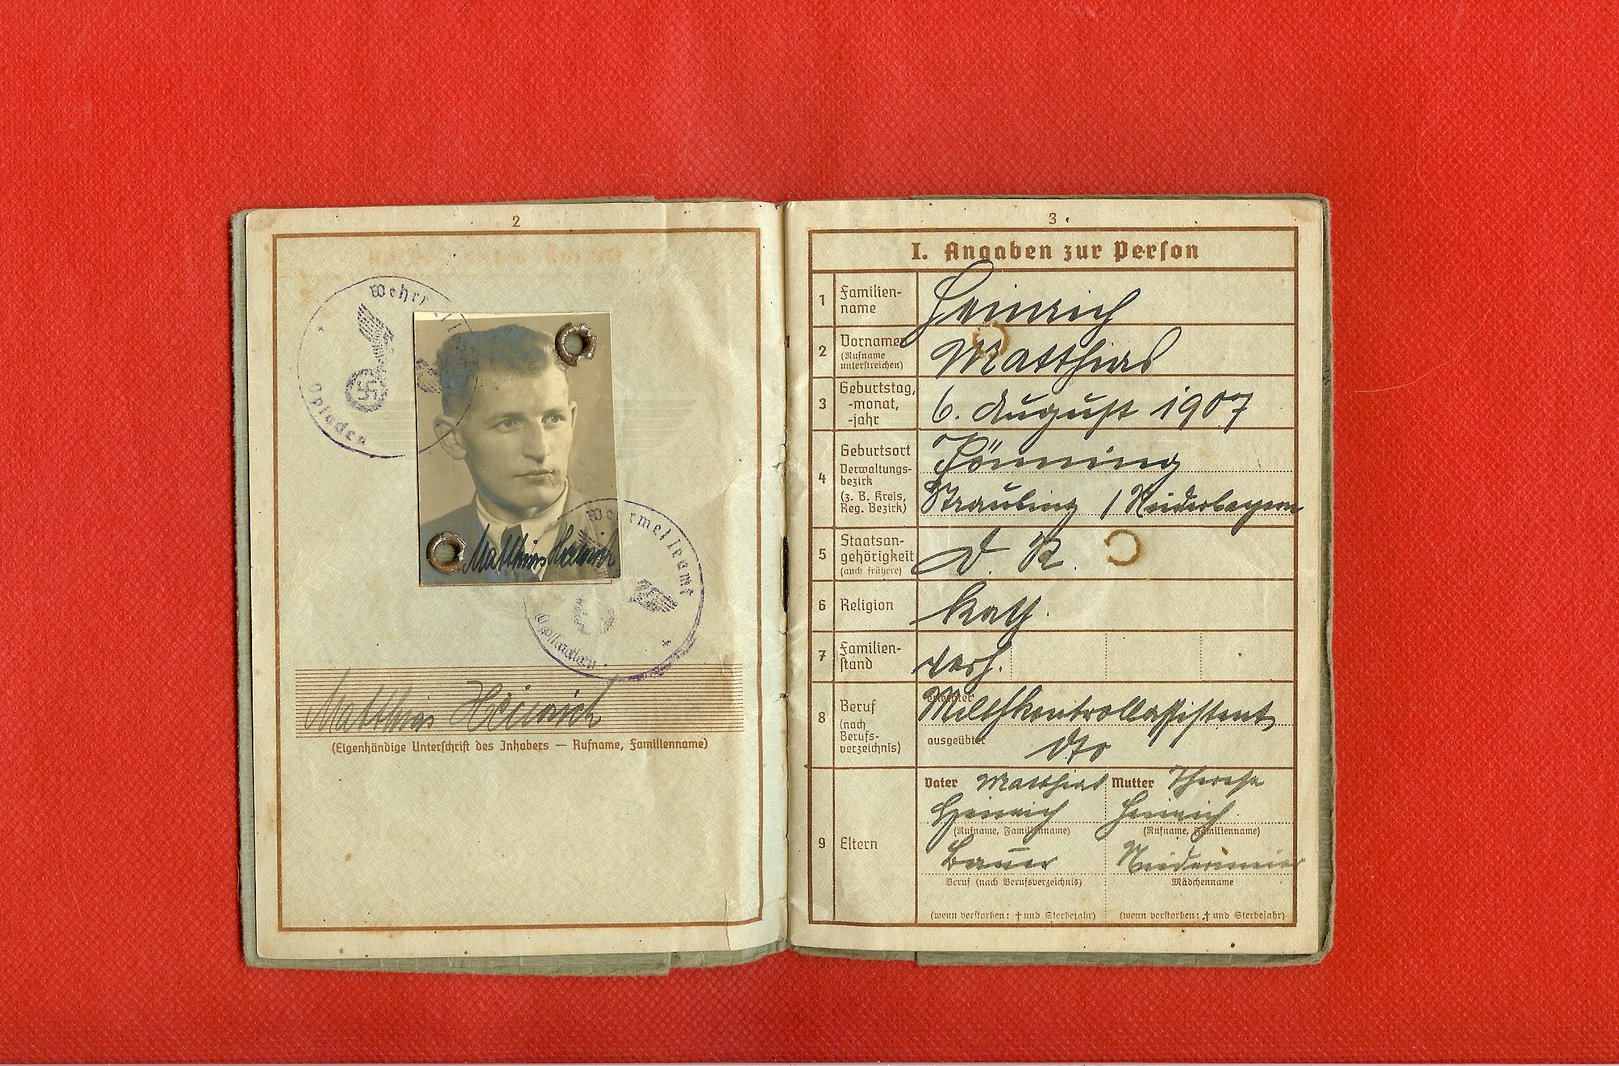 2
Wehrmeldeamt
Opladen
Matthias Heinrich
Wehrmeldeamt
Opladen
Matthias Heinrich
(Eigenhändige Unterschrift des Inhabers — Rufname, Familienname)
3
I. Angaben zur Person
1 Familien-
name
Heinrich
2 Vorname
(Rufname
unterstreichen)
Matthias
3 Geburtstag,
-monat,
-jahr
6. August 1907
4 Geburtsort
Verwaltungs-
bezirk
(z. B. Kreis,
Reg. Bezirk)
Straubing / Niederbayern
5 Staatsan-
gehörigkeit
(auch frühere)
D. R.
6 Religion
kath.
7 Familien-
stand
verh.
8 Beruf
(nach
Berufs-
verzeichnis)
erlernter
Milchkontrollassistent
ausgeübter
dto
9 Eltern
Vater Matthias Mutter Theresa
Heinrich Heinrich
(Rufname, Familienname) (Rufname, Familienname)
Bauer Niedermeier
Beruf (nach Berufsverzeichnis) Mädchenname
(wenn verstorben: † und Sterbejahr) (wenn verstorben: † und Sterbejahr)